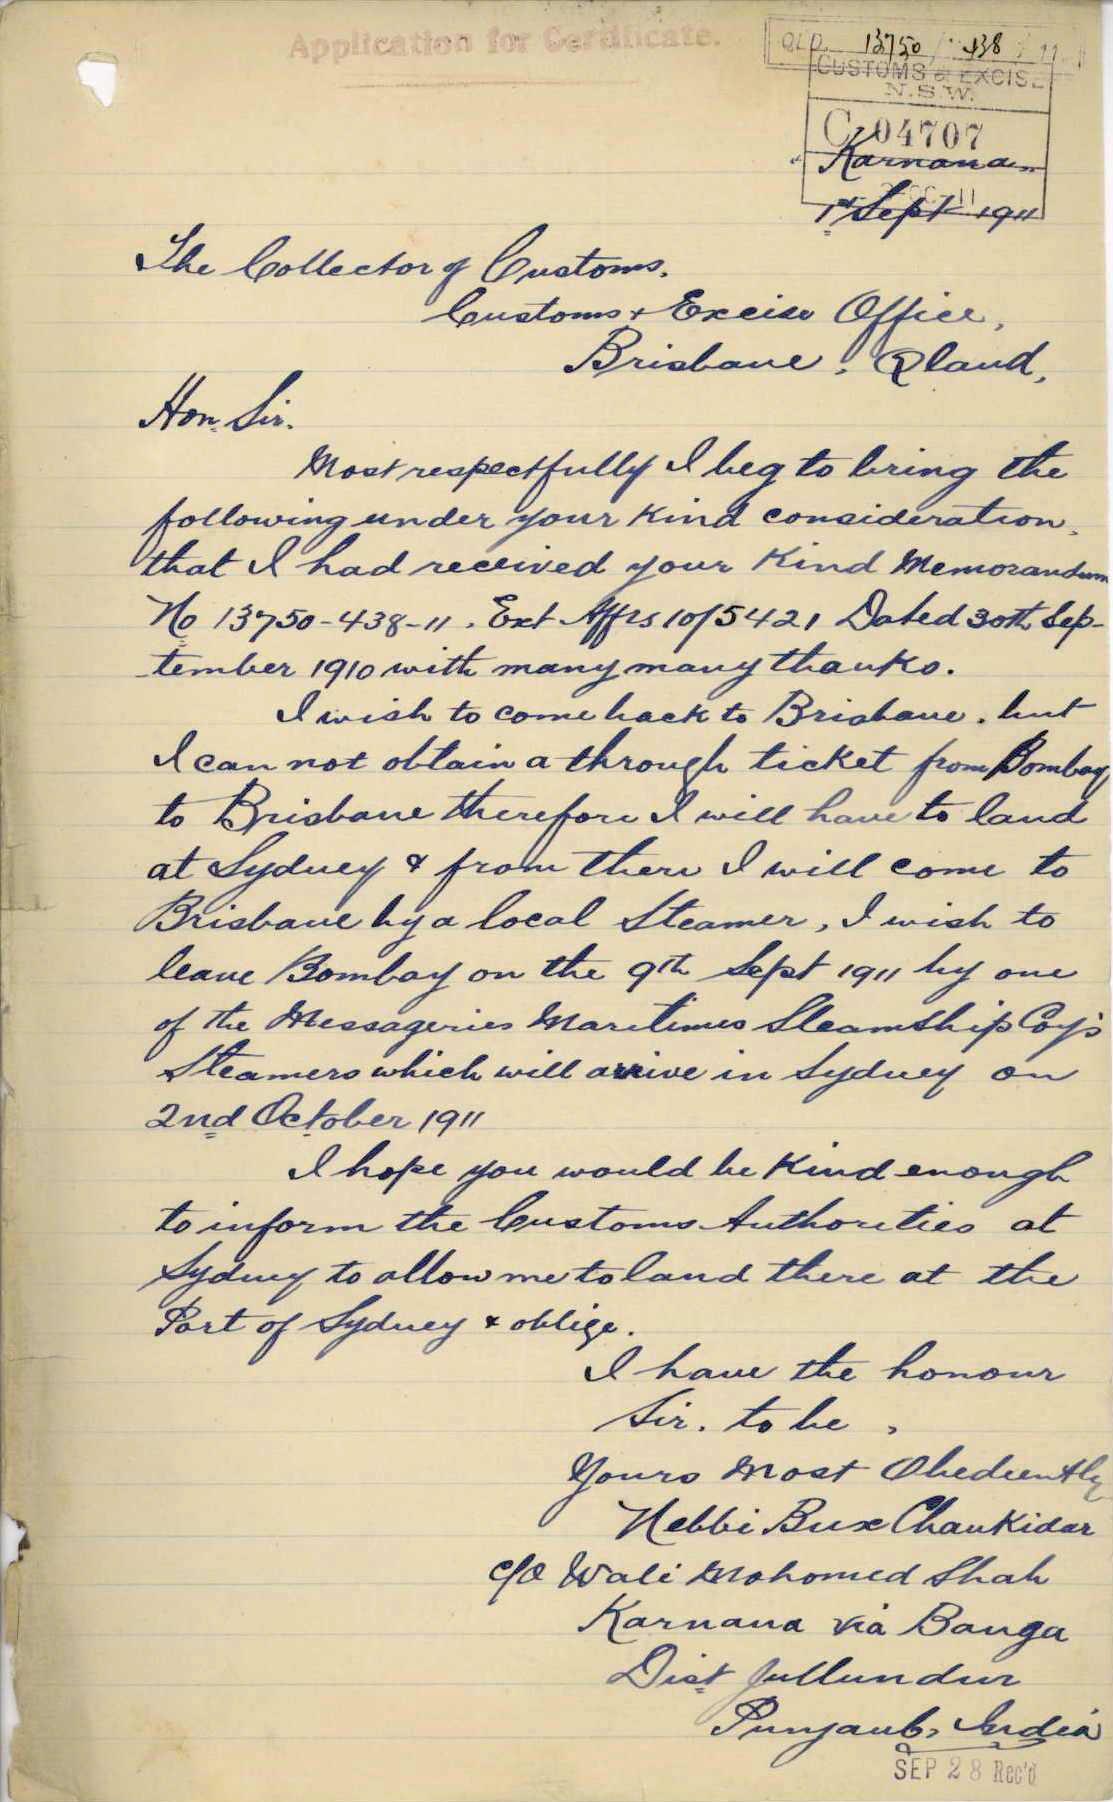 Application for Certificate.
QLD. 13750 / 438 / 11
CUSTOMS & EXCISE
N.S.W.
C 04707
Karnana
1st Sept 1911
The Collector of Customs.
Customs & Excise Office,
Brisbane, Qland,
Hon. Sir.
Most respectfully I beg to bring the
following under your kind consideration,
that I had received your kind Memorandum
No 13750-438-11. Ext Affrs 10/5421 Dated 30th Sep-
-tember 1910 with many many thanks.
I wish to come back to Brisbane. but
I can not obtain a through ticket from Bombay
to Brisbane therefore I will have to land
at Sydney & from there I will come to
Brisbane by a local Steamer, I wish to
leave Bombay on the 9th Sept 1911 by one
of the Messageries Maritimes Steamship Coy's
Steamers which will arrive in Sydney on
2nd October 1911
I hope you would be kind enough
to inform the Customs Authorities at
Sydney to allow me to land there at the
Port of Sydney & oblige.
I have the honour
Sir. to be,
Yours Most Obediently
Nebbi Bux Chaukidar
c/o Wali Mohomed Shah
Karnana via Banga
Dist Jullundur
Punjaub, India
SEP 28 Rec'd